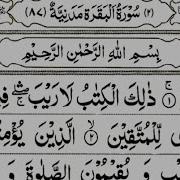 (٢) سُوْرَةُ الْبَقَرَةِ مَدَنِيَّةٌ (٨٧)
بِسْمِ اللهِ الرَّحْمٰنِ الرَّحِيْمِ
١ ذٰلِكَ الْكِتٰبُ لَا رَيْبَ ۛ فِيْ
لِّلْمُتَّقِيْنَ ٢ الَّذِيْنَ يُؤْمِ
وَ يُقِيْمُوْنَ الصَّلٰوةَ وَ